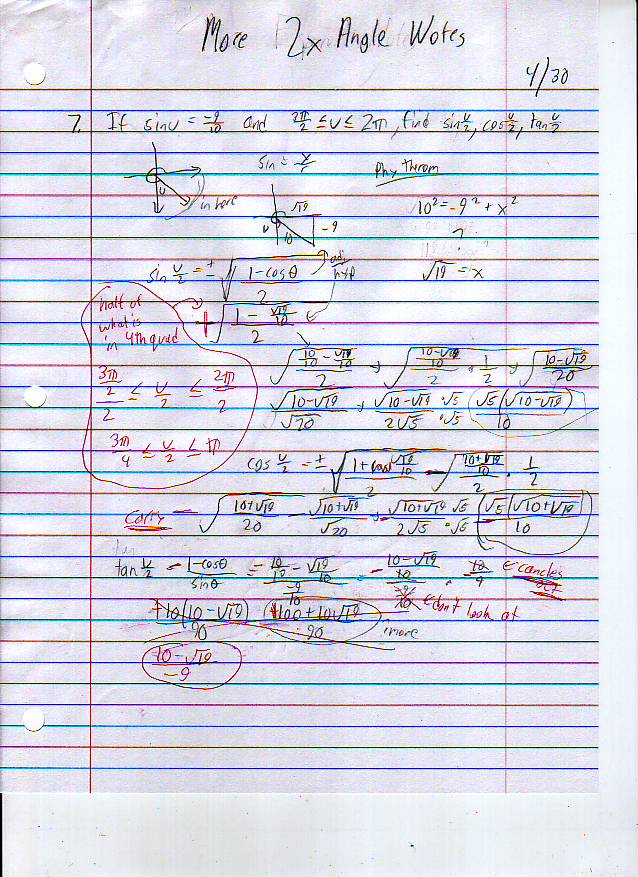 More 2x Angle Notes
4/30
7. If sin u = -9/10 and 3π/2 ≤ u ≤ 2π, find sin u/2, cos u/2, tan u/2
sin = y/r
Phy Therom
u
in here
√19
u 10 -9
10² = -9² + x²
?
√19 = x
sin u/2 = ± √((1 - cos θ)/2)
adj/hyp
+ √((1 - √19/10)/2)
half of
what is
in 4th quad
(3π/2)/2 ≤ u/2 ≤ 2π/2
3π/4 ≤ u/2 ≤ π
√((10/10 - √19/10)/2) → √(((10-√19)/10)/2 · 1/2) → √((10-√19)/20)
√(10-√19)/√20 → √(10-√19)/(2√5) · √5/√5 √5(√(10-√19))/10
cos u/2 = ± √((1 + cos √19/10)/2) √(((10+√19)/10)/2 · 1/2)
√((10+√19)/20) √(10+√19)/√20 √(10+√19)/(2√5) · √5/√5 √5(√(10+√19))/10
tan u/2 = (1 - cos θ)/sin θ = (10/10 - √19/10)/(-9/10) = ((10-√19)/10)/(-9/10) · 10/9 ← cancles out
← don't look at
+10(10-√19)/90 +100+10√19/90 more
(10-√19)/-9